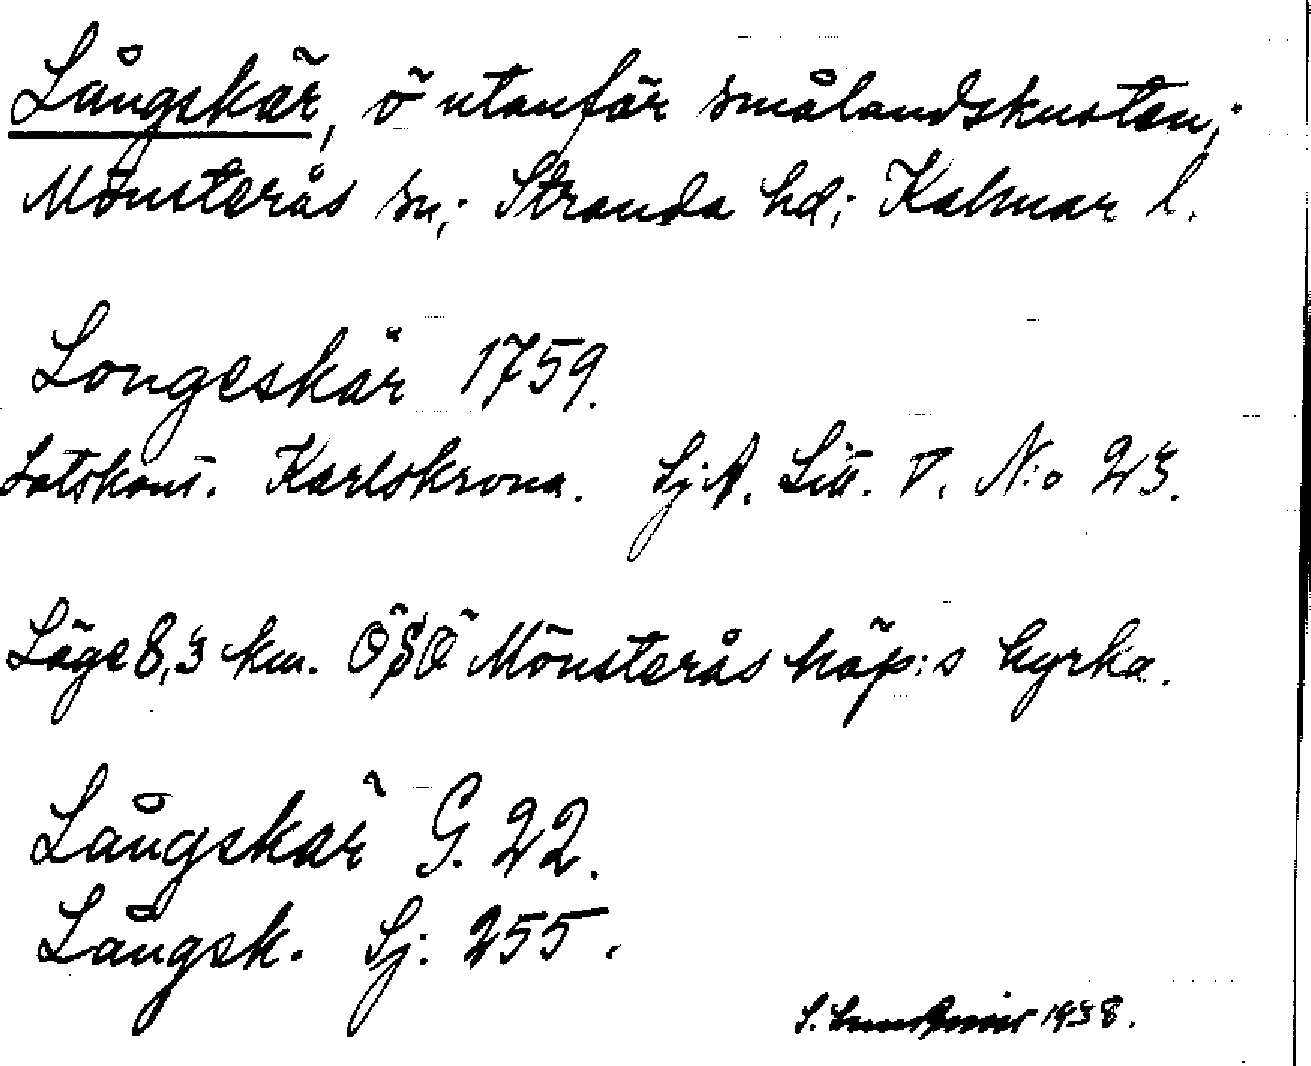 Långskär, ö utanför smålandskusten;
Mönsterås sn; Stranda hd; Kalmar l.
Longeskär 1759.
Lotskont. Karlskrona. Sj.A. Litt. V. N:o 23.
Läge 8,3 km. ÖSÖ Mönsterås köp:s kyrka.
Långskär G. 22.
Långsk. Sj. 255.
S. 1938.